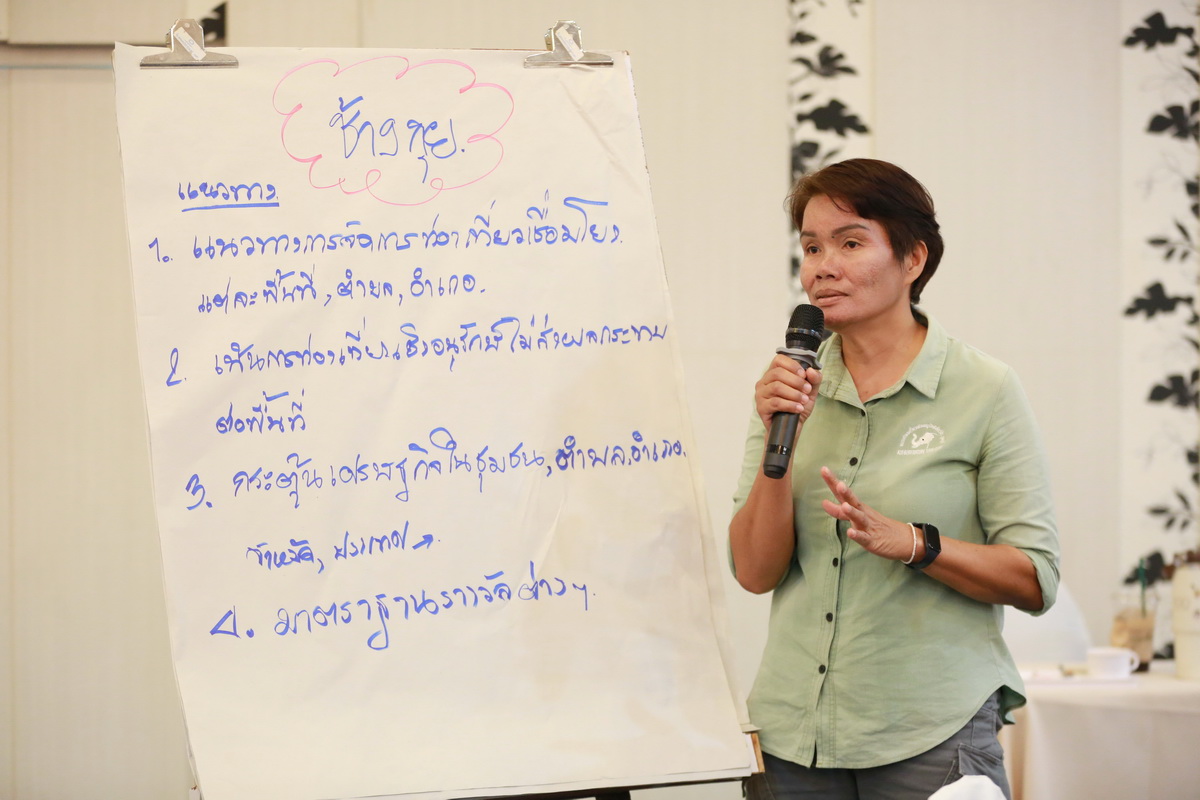 ช้างกุย.
แนวทาง
1. แนวทางการจัดการท่องเที่ยวเชื่อมโยง.
แต่ละพื้นที่, ตำบล, อำเภอ.
2. เป็นการท่องเที่ยวเชิงอนุรักษ์ ไม่ส่งผลกระทบ
ต่อพื้นที่
3. กระตุ้นเศรษฐกิจในชุมชน, ตำบล, อำเภอ.
จังหวัด, ประเทศ →
4. มาตราฐานรางวัลต่าง ๆ.